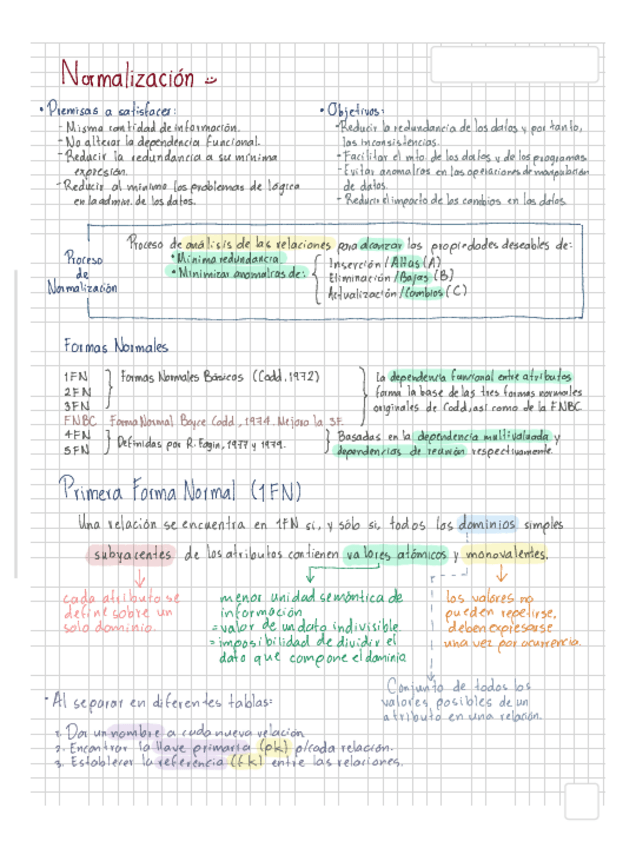 Normalización
• Premisas a satisfacer:
- Misma cantidad de información.
- No alterar la dependencia funcional.
- Reducir la redundancia a su mínima
expresión.
- Reducir al mínimo los problemas de lógica
en la admin. de los datos.
• Objetivos:
- Reducir la redundancia de los datos y por tanto,
las inconsistencias.
- Facilitar el mto. de los datos y de los programas
- Evitar anomalías en las operaciones de manipulación
de datos.
- Reducir el impacto de los cambios en los datos.
Proceso
de
Normalización
Proceso de análisis de las relaciones para alcanzar las propiedades deseables de:
• Mínima redundancia.
• Minimizar anomalías de:
Inserción / Altas (A)
Eliminación / Bajas (B)
Actualización / Cambios (C)
Formas Normales
1FN
2FN
3FN
Formas Normales Básicas (Codd, 1972)
La dependencia funcional entre atributos
forma la base de las tres formas normales
originales de Codd, así como de la FNBC.
FNBC Forma Normal Boyce Codd, 1974. Mejora la 3F
4FN
5FN
Definidas por R. Fagin, 1977 y 1979.
Basadas en la dependencia multivaluada y
dependencias de reunión respectivamente.
Primera Forma Normal (1FN)
Una relación se encuentra en 1FN si, y sólo si, todos los dominios simples
subyacentes de los atributos contienen valores atómicos y monovalentes.
cada atributo se
define sobre un
solo dominio.
menor unidad semántica de
información
= valor de un dato indivisible
= imposibilidad de dividir el
dato que compone el dominio
los valores no
pueden repetirse,
deben expresarse
una vez por ocurrencia.
Conjunto de todos los
valores posibles de un
atributo en una relación.
· Al separar en diferentes tablas:
1. Dar un nombre a cada nueva relación
2. Encontrar la llave primaria (pk) p/cada relación.
3. Establecer la referencia (fk) entre las relaciones.